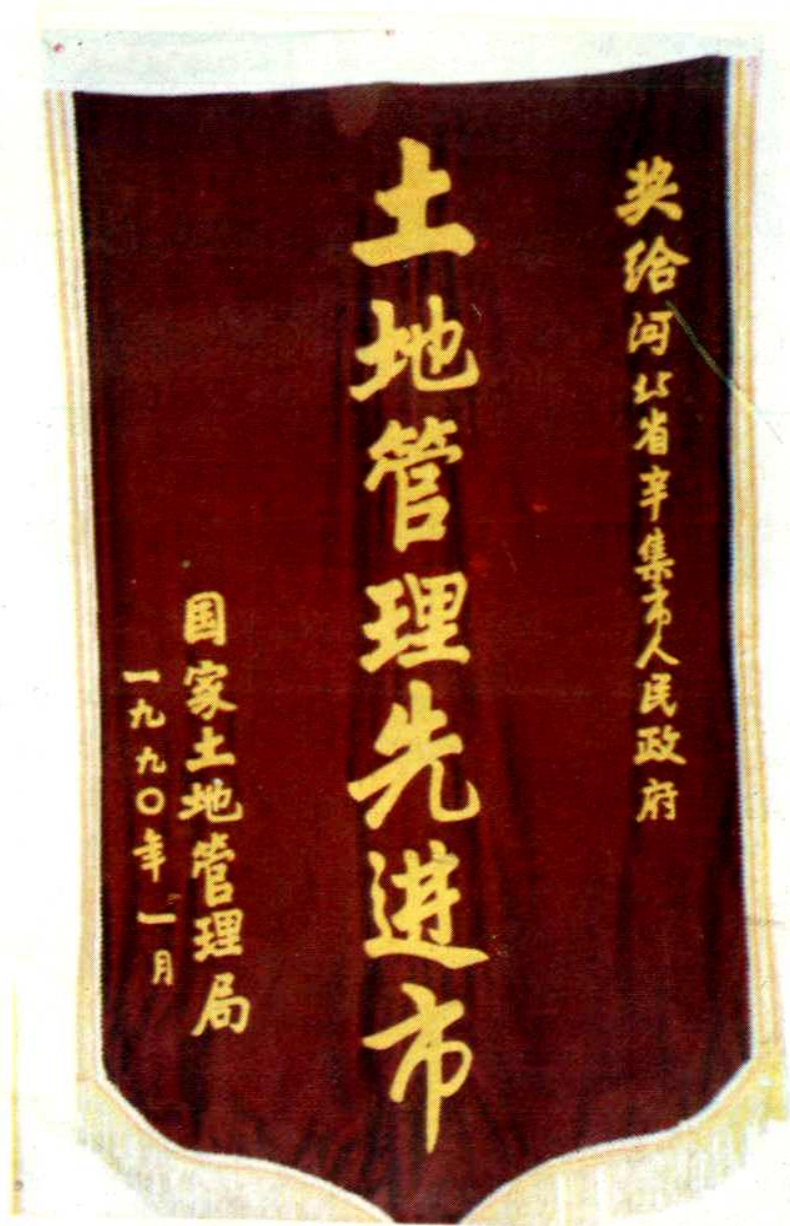 奖给河北省辛集市人民政府
土地管理先进市
国家土地管理局
一九九〇年一月